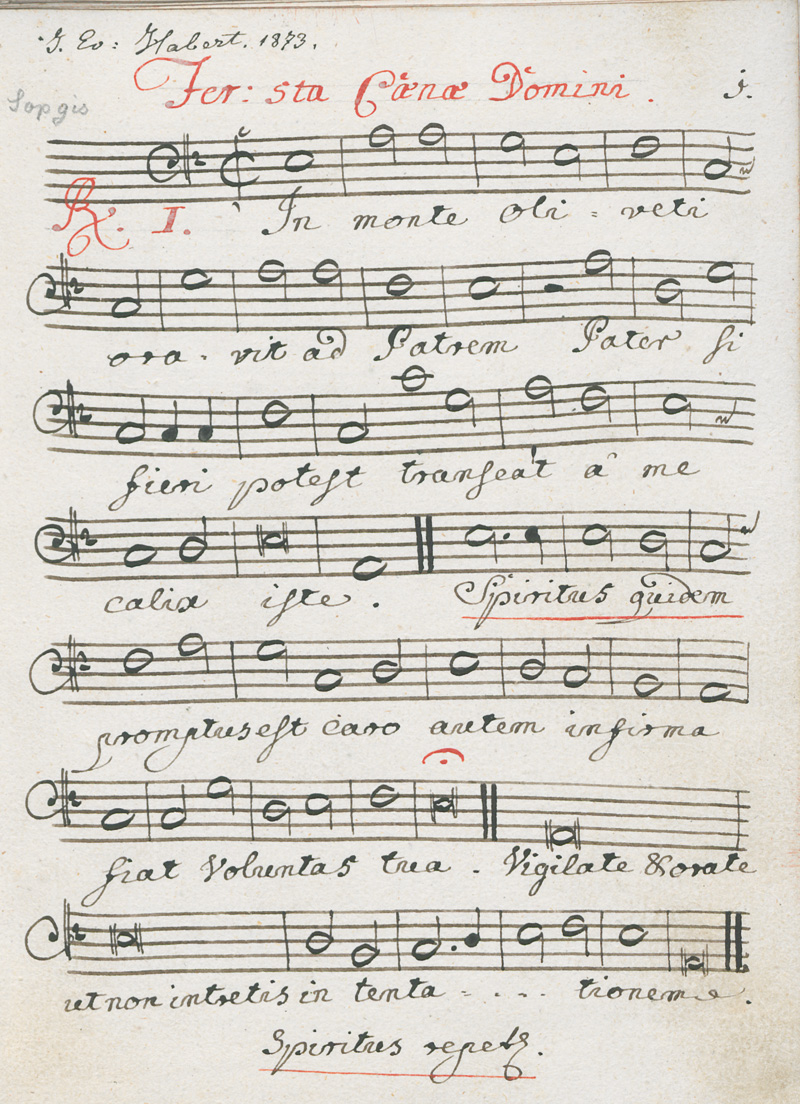 J. Ev: Habert. 1873.
Fer: 5ta Cœnæ Domini. 1.
℞. I. In monte Oli = veti
ora. vit ad Patrem Pater si
fieri potest transeat â me
calix iste. Spiritus quidem
promptus est caro autem infirma
fiat Voluntas tua. Vigilate & orate
ut non intretis in tenta - . . . tionem.
Spiritus repet.